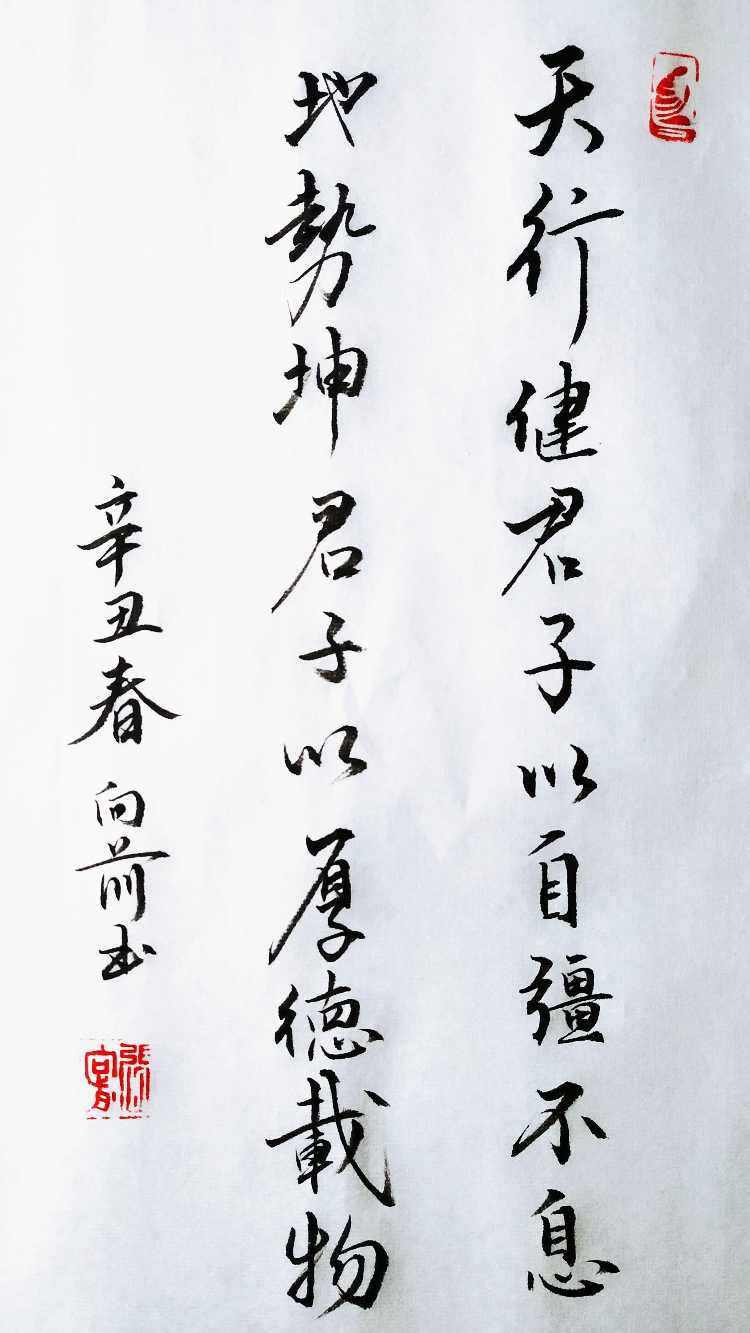 天行健君子以自彊不息
地勢坤君子以厚德載物
辛丑春向前书